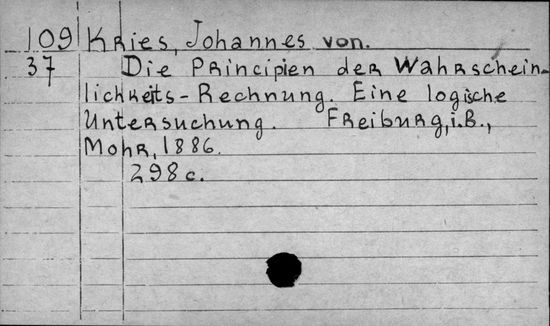 109 Kries, Johannes von.
37 Die Principien der Wahrschein-
lichkeits-Rechnung. Eine logische
Untersuchung. Freiburg, i.B.,
Mohr, 1886.
298 c.